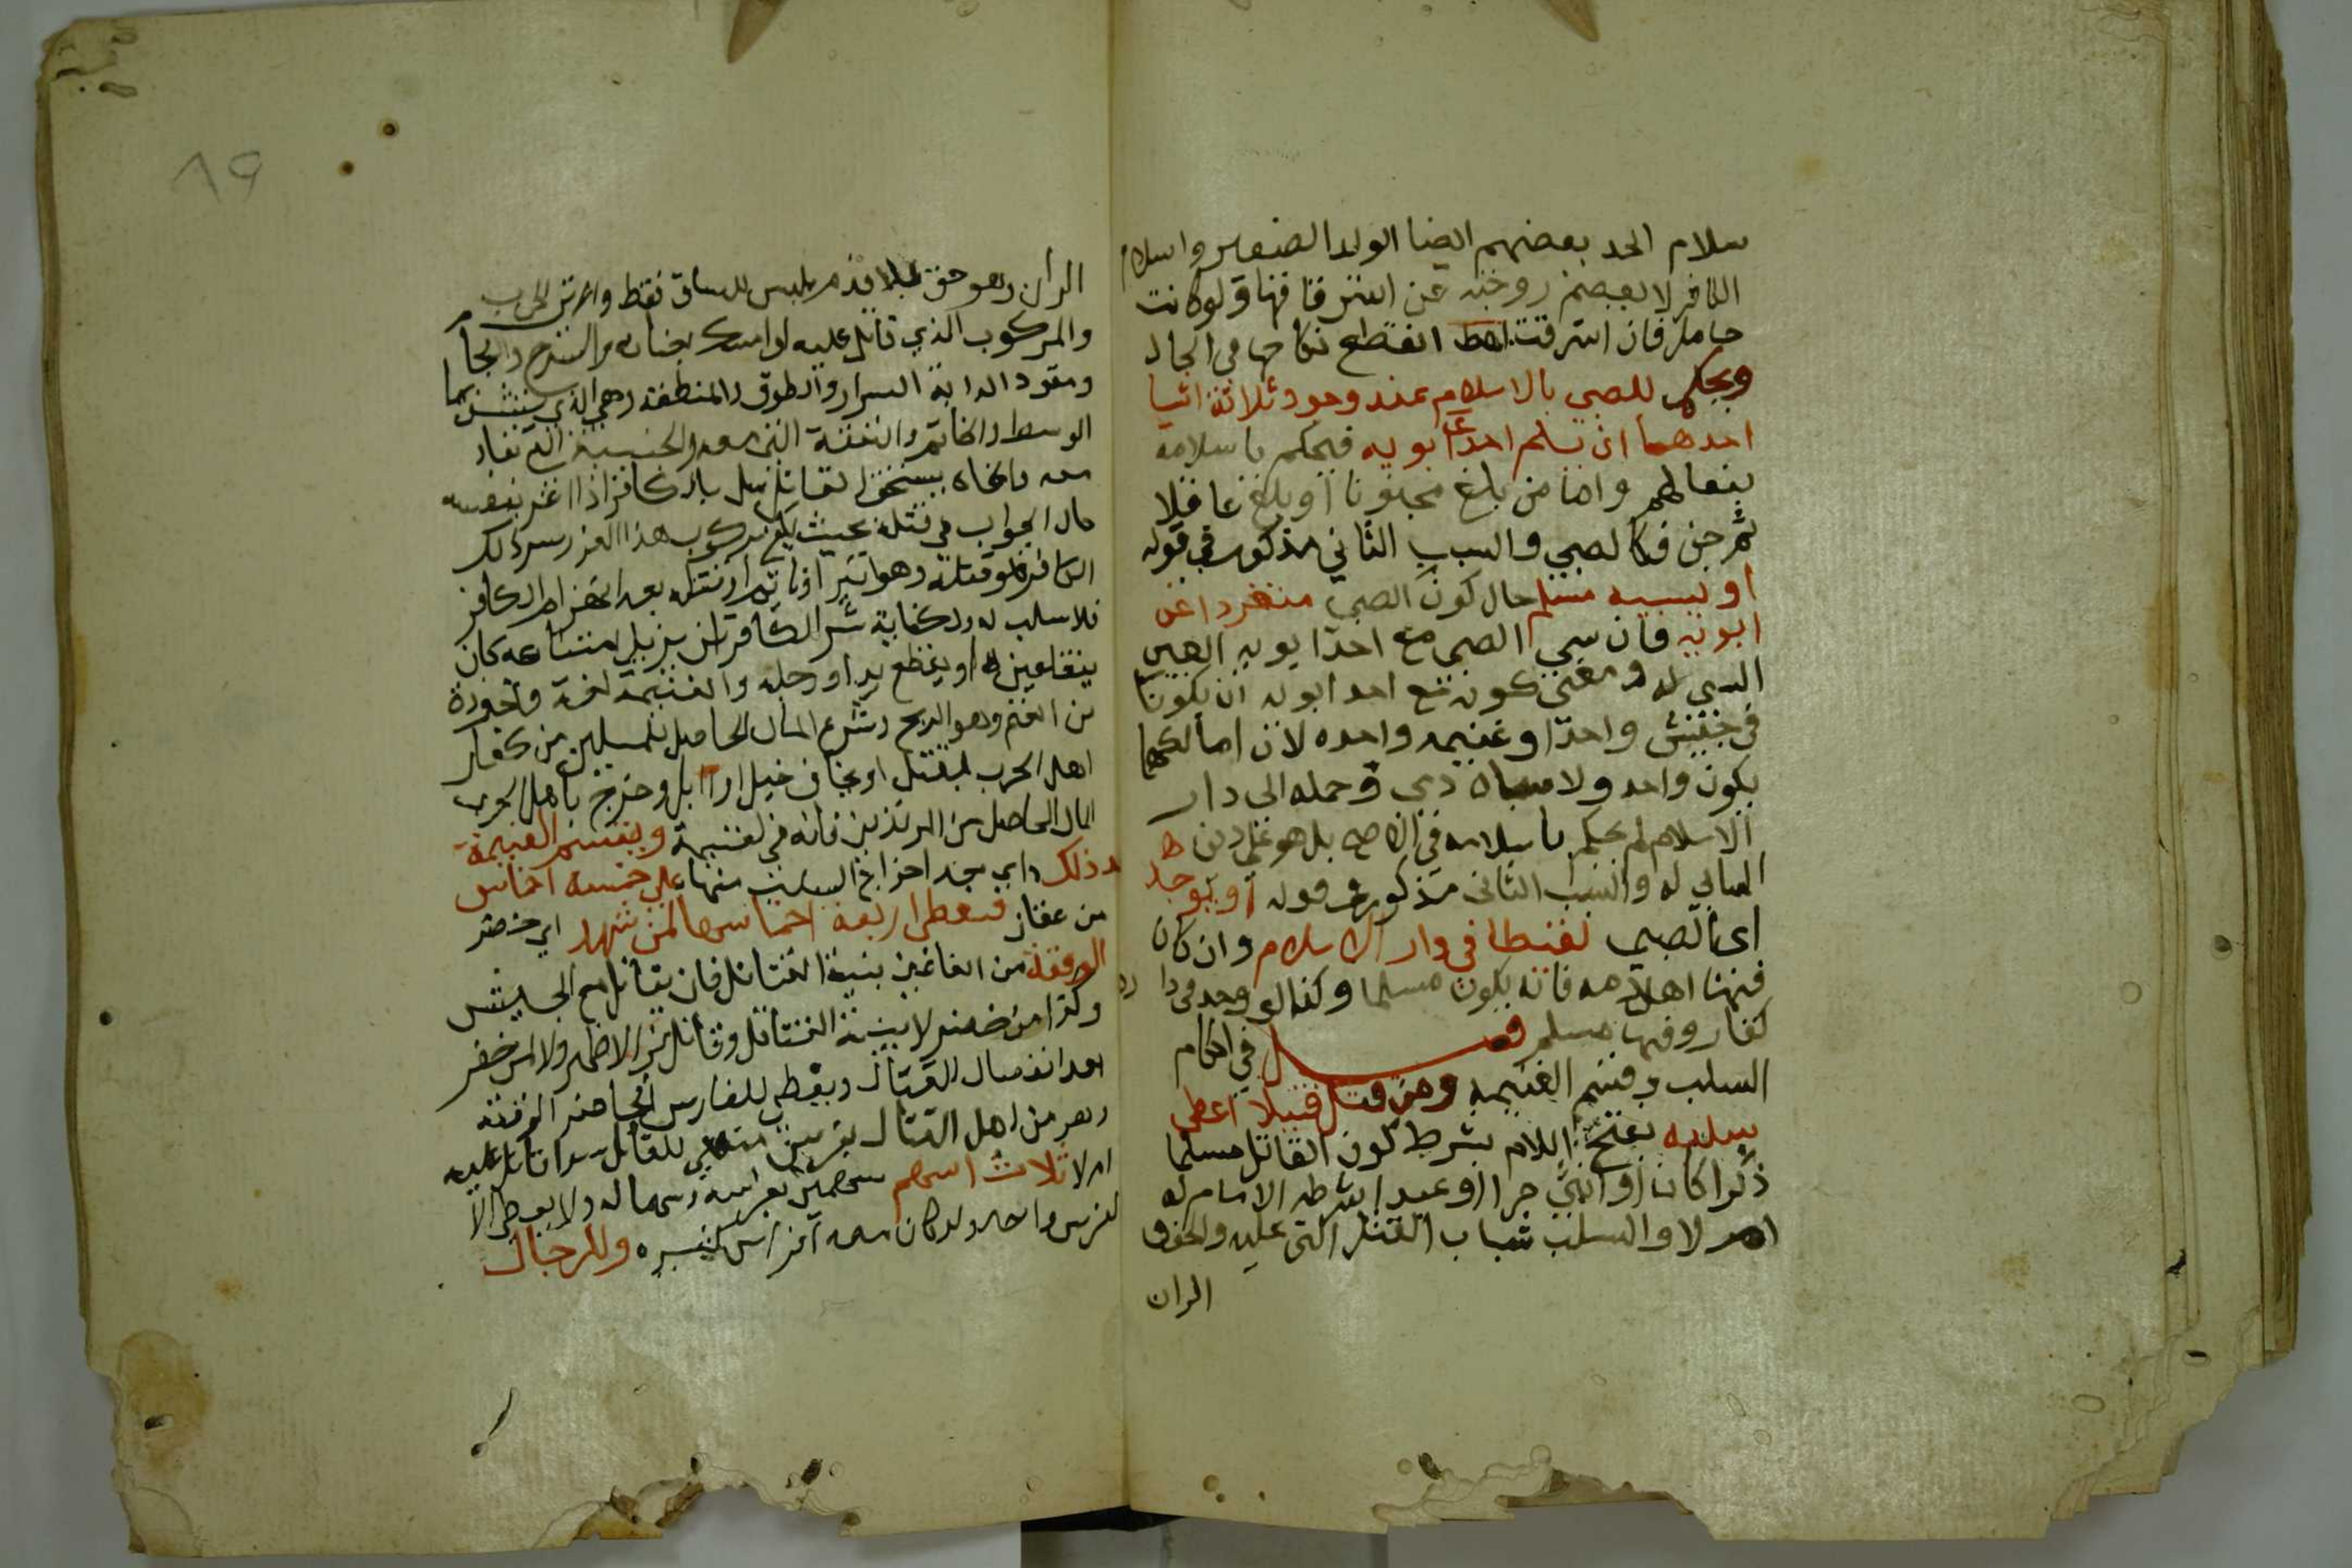 سلام الجد يعصم ايضا الولد الصغير واسلام
الكافر لا يعصم زوجته عن استرقاقها ولو كانت
حاملا فان استرقت انقطع نكاحها في الحال
ويحكم للصبي بالاسلام عند وجود ثلاثة اشيا
احدهما ان يسلم احد ابويه فيحكم باسلامه
تبعا لهم واما من بلغ مجنونا او بلغ عاقلا
ثم جن فكالصبي والسبب الثاني مذكور في قوله
او يسبيه مسلم حال كون الصبي منفردا عن
ابويه فان سبي الصبي مع احد ابويه
السبي له ومعنى كونه مع احد ابويه ان يكونا
في جيش واحد او غنيمه واحده لا ان مالكهما
يكون واحد ولو سباه ذمي وحمله الى دار
الاسلام لم يحكم باسلامه في الاصح بل هو على دين
السابي له والسبب الثالث مذكور في قوله او يوجد
اي الصبي لقيطا في دار الاسلام وان كان
فيها اهل ذمه فانه يكون مسلما وكذا لو وجد في دار
كفار وفيها مسلم فصل في احكام
السلب وقسم الغنيمه ومن قتل قتيلا اعطي
سلبه بفتح اللام بشرط كون القاتل مسلما
ذكرا كان او انثى حرا او عبدا شرطه الامام له
ام لا والسلب ثياب القتيل التي عليه والخف
الران
٨٩
الران وهو خف بلا قدم يلبس للساق فقط وآلات الحرب
والمركوب الذي قاتل عليه او امسكه بعنانه والسرج واللجام
ومقود الدابة والسوار والطوق والمنطقة وهي الذي يشد بها
الوسط والخاتم والنفقة التي معه والجنيبة التي تقاد
معه وانما يستحق القاتل سلب الكافر اذا غرر بنفسه
حال الحراب في قتله بحيث يكفي بركوب هذا الغرر شر ذلك
الكافر فلو قتله وهو اسير او نائم او قتله بعد انهزام الكافر
فلا سلب له وكفاية شر الكافر ان يزيل امتناعه كان
يفقأ عينيه او يقطع يديه او رجليه والغنيمة لغة ماخوذة
من الغنم وهو الربح وشرعا المال الحاصل للمسلمين من كفار
اهل الحرب بقتال او ايجاف خيل او ابل وخرج باهل الحرب
المال الحاصل من المرتدين فانه فيء لا غنيمة وتقسم الغنيمة
بعد ذلك اي بعد اخراج السلب منها على خمسة اخماس
من عقار فيعطى اربعة اخماسها لمن شهد اي حضر
الوقعة من الغانمين بنية القتال وان لم يقاتل مع الجيش
وكذا من حضر لا بنية القتال وقاتل في الاظهر ولا لمن حضر
بعد انقضاء القتال ويعطى للفارس الحاضر الوقعة
وهو من اهل القتال بفرس مهيئ للقتال سواء قاتل عليه
ام لا ثلاث اسهم سهمين لفرسه وسهما له ولا يعطى الا
لفرس واحد ولو كان معه افراس كثيره وللراجل